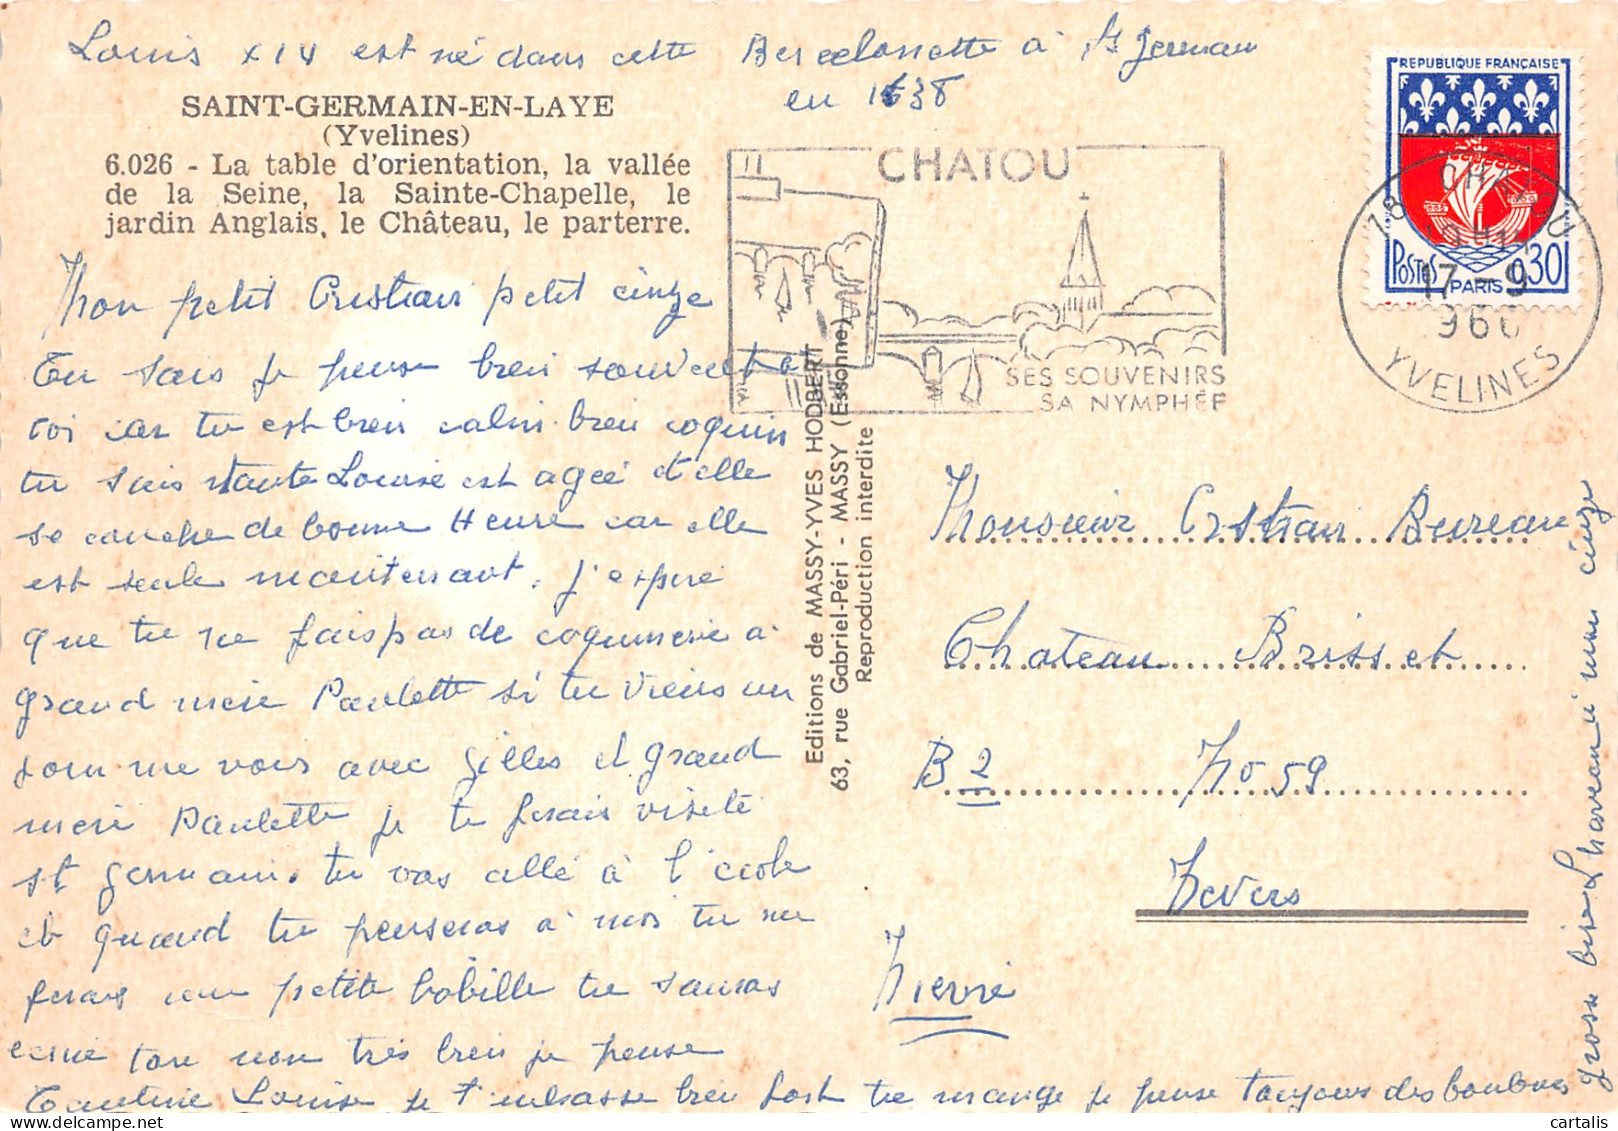 Louis XIV est né dans cette Bercelonette à St Germain
en 1638
SAINT-GERMAIN-EN-LAYE
(Yvelines)
6.026 - La table d'orientation, la vallée
de la Seine, la Sainte-Chapelle, le
jardin Anglais, le Château, le parterre.
Mon petit Cristian petit cinge
tu sais je pense bien souvent a
toi car tu est bien calin bien coquin
tu sais tante Louise est ageé et elle
se couche de bonne Heure car elle
est seule maintenant. j'espere
que tu ne fais pas de coquinerie a
grand mere Paulette si tu viens un
jour me voir avec Gilles et grand
mere Paulette je te ferais visite
st germain. tu vas allé à l'école
et quand tu penseras a moi tu me
feras une petite babille tu sauras
ecrire ton nom très bien je pense
Tantine Louise je t'embrasse bien fort tu mange je pense toujours des bonbons
grosse bise a mon cinge
CHATOU
SES SOUVENIRS
SA NYMPHÉE
REPUBLIQUE FRANÇAISE
POSTES 0,30
PARIS
78 CHATOU
17 - 9
1966
YVELINES
Editions de MASSY-YVES HODBERT
63, rue Gabriel-Péri - MASSY (Essonne)
Reproduction interdite
Monsieur Cristian Bureau
Chateau Brisset
B 2 No 59
Nevers
Nievre
cartalis